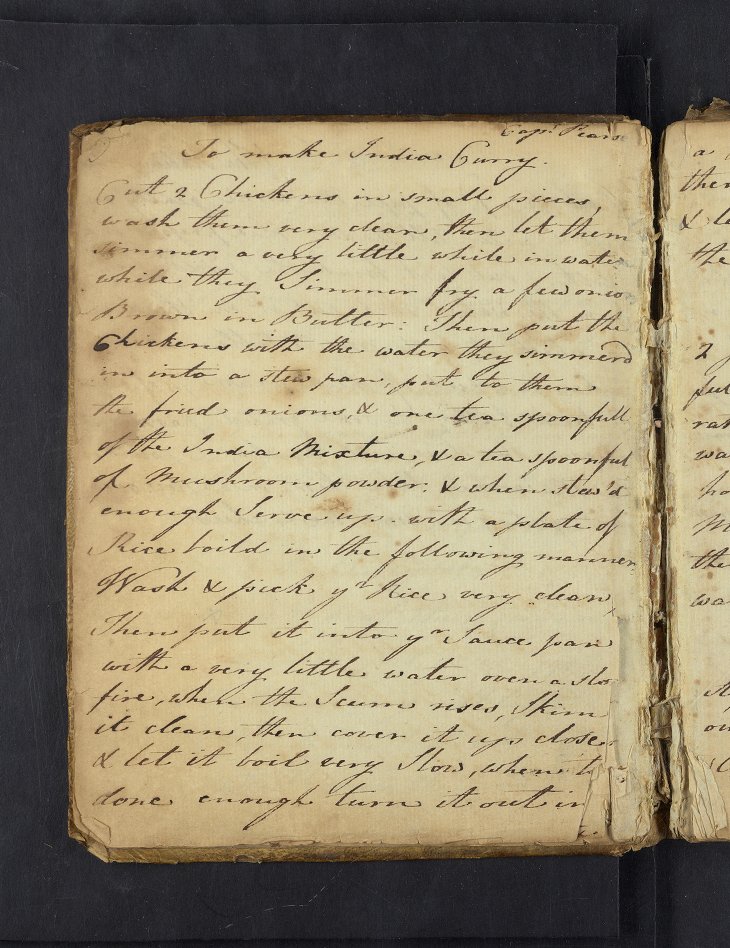 Capt. Pears
To make India Curry.
Cut 2 Chickens in small pieces,
wash them very clean, then let them
simmer a very little while in wate
while they Simmer fry a few onio
Brown in Butter: Then put the
Chickens with the water they simmerd
in into a stew pan, put to them
the fried onions, & one tea spoonfull
of the India Mixture, & a tea spoonful
of Mushroom powder. & when stew'd
enough Serve up. with a plate of
Rice boild in the following manner
Wash & pick yr Rice very clean,
Then put it into yr Sauce pan
with a very little water over a slo
fire, when the Scum rises, Skim
it clean, then cover it up close
& let it boil very Slow, when
done enough turn it out in
a
then
& le
the
2
ful
rat
wa
ho
the
wa